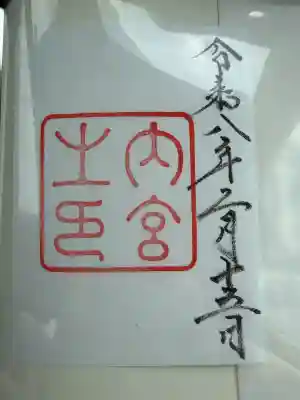 令和八年二月十五日
内宮
之印